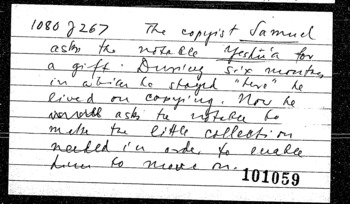 1080 J 267 The copyist Samuel
asks the notable Yeshu'a for
a gift. During six months
in which he stayed "here" he
lived on copying. Now he
asks the notable to
make the little collection
needed in order to enable
him to move on.
101059